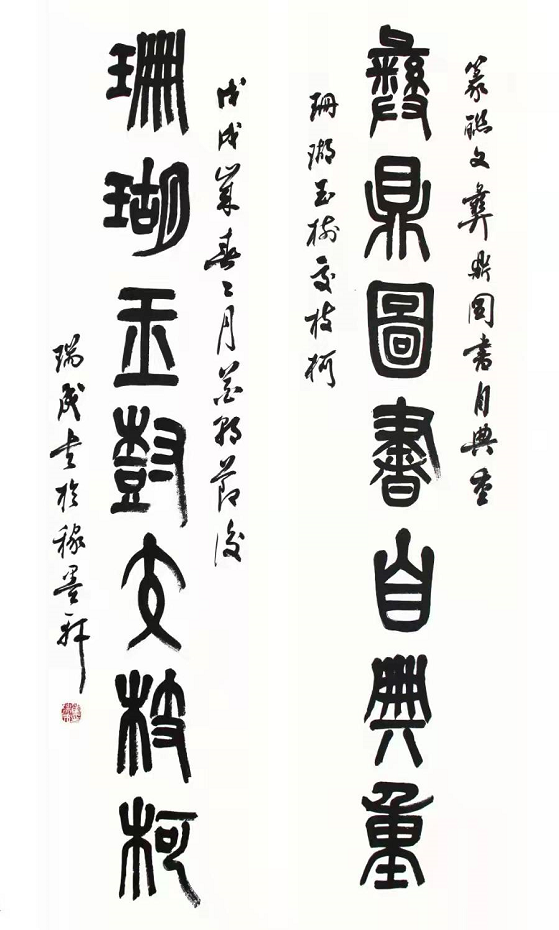 篆聯文彝鼎图書自典重
彝鼎圖書自典重
珊瑚玉樹交枝柯
戊戌歲春二月花朝節後
珊瑚玉樹交枝柯
瑞書於稼墨軒